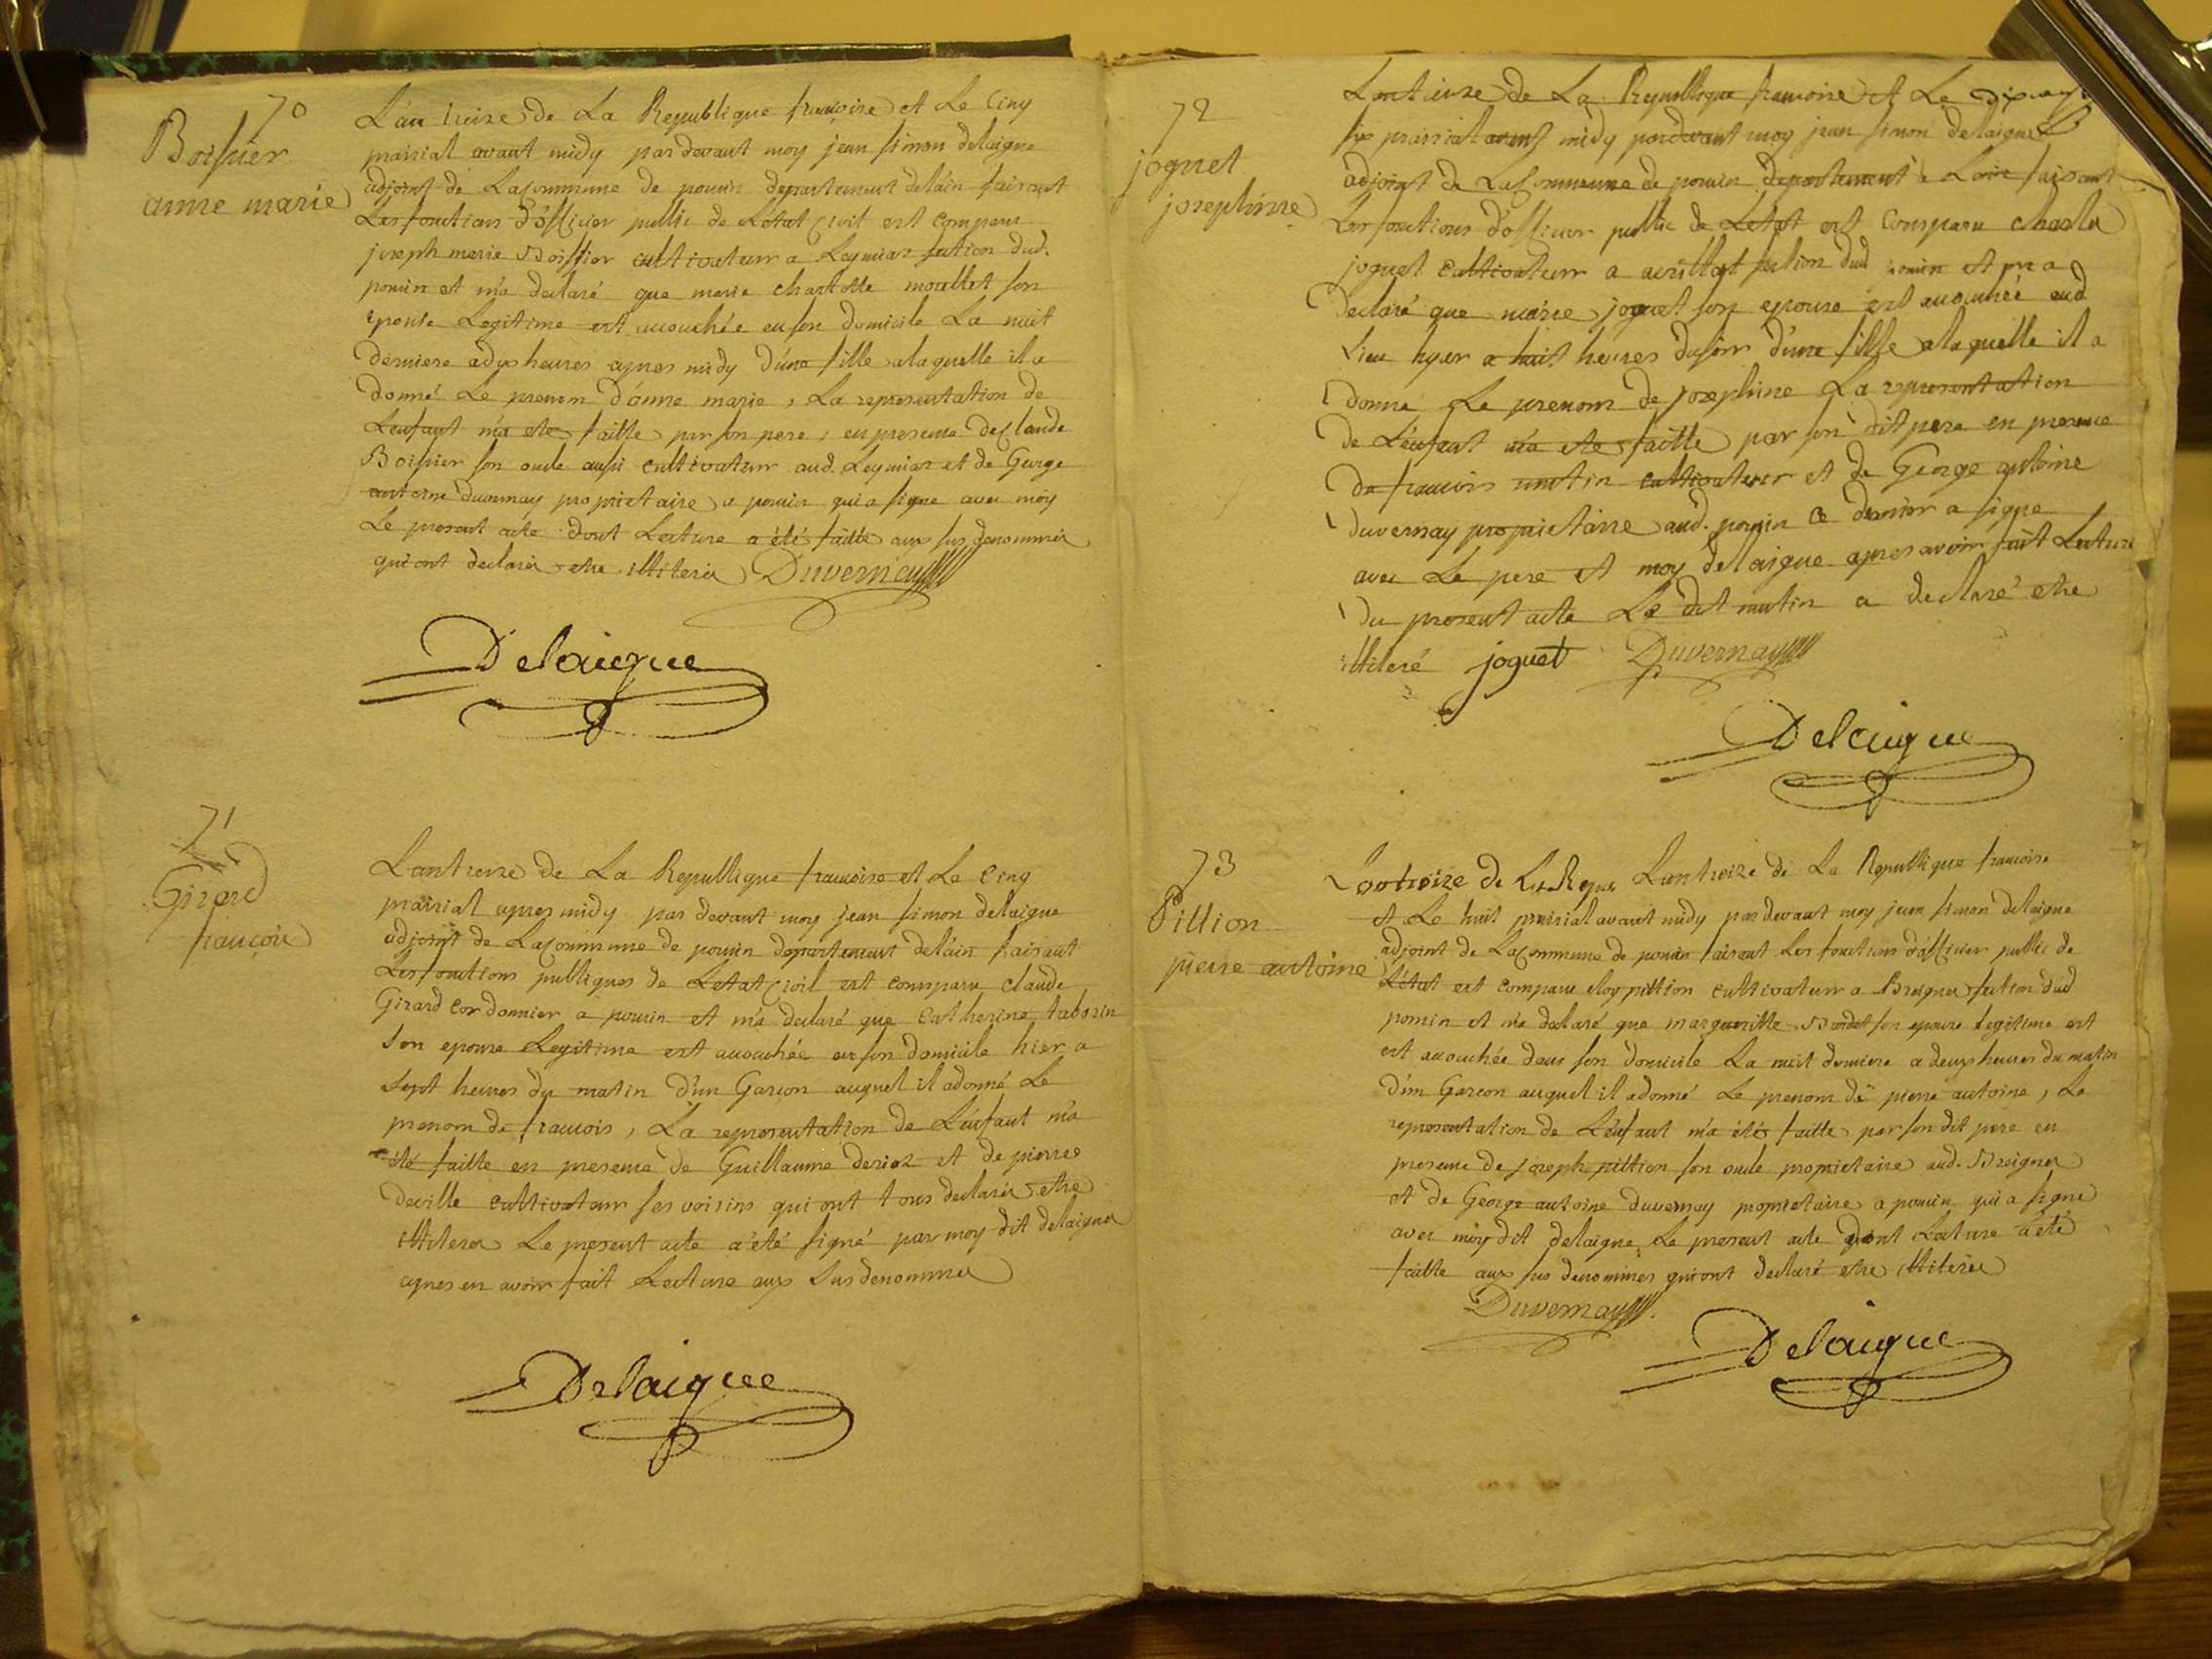 70
Boissier
anne marie
L'an treize de La Republique francoise et Le Cinq
prairial avant midy par devant moy jean simon delaigue
adjoint de La Commune de poncin departement delain faisant
Les fonctions d'officier public de L'état Civil est comparu
joseph marie Boissier cultivateur a Leymiaz section dud.
poncin et m'a declaré que marie charlotte mollet son
epouse Legitime est accouchée en son domicile La nuit
derniere a dix heures apres midy d'une fille a laquelle il a
donné Le prenom d'anne marie, La representation de
L'enfant m'a eté faitte par son pere, en presence de Claude
Boissier son oncle aussi cultivateur aud. Leymiaz et de George
antoine duvernay proprietaire a poncin qui a signé avec moy
Le present acte dont Lecture a été faitte aux sus denommés
qui ont declarés etre illiterés Duvernay
Delaigue
71
Girard
francois
L'an treize de La Republique francoise et Le Cinq
prairial apres midy par devant moy jean simon delaigue
adjoint de La Commune de poncin departement delain faisant
Les fonctions publiques de L'etat Civil est comparu claude
Girard Cordonnier a poncin et m'a declaré que Catherine taborin
son epouse Legitime est accouchée en son domicile hier a
sept heures du matin d'un Garcon auquel il a donné Le
prenom de francois, La representation de L'enfant m'a
été faitte en presence de Guillaume et de pierre
deville cultivateur ses voisins qui ont tous declarés etre
illiterés Le present acte a été signé par moy dit delaigue
apres en avoir fait Lecture aux susdenommés
Delaigue
72
joguet
josephine
L'an treize de La Republique francoise et Le
six prairial avant midy pardevant moy jean simon delaigue
adjoint de La Commune de poncin departement de Lain faisant
Les fonctions d'officier public de L'etat est Comparu charles
joguet cultivateur a avrillat section dud poncin et m'a
declaré que marie joguet son epouse est accouchée aud
Lieu hyer a huit heures du soir d'une fille a laquelle il a
donné Le prenom de josephine La representation
de L'enfant m'a eté faitte par son dit pere en presence
de francois mutin cultivateur et de George antoine
duvernay proprietaire aud. poncin ce dernier a signé
avec Le pere et moy delaigue apres avoir fait Lecture
du present acte Le dit mutin a declaré etre
illiteré joguet Duvernay
Delaigue
73
Pillion
pierre antoine
L'an treize de La Repu L'an treize de La Republique francoise
et Le huit prairial avant midy par devant moy jean simon delaigue
adjoint de La Commune de poncin faisant Les fonctions d'officier public de
L'état est comparu eloy pillion cultivateur a Breignes section dud
poncin et m'a declaré que margueritte Bardet son epouse legitime est
est accouchée dans son domicile La nuit derniere a deux heures du matin
d'un Garcon auquel il a donné Le prenom de pierre antoine, La
representation de L'enfant m'a été faitte par son dit pere en
presence de joseph pillion son oncle proprietaire aud. Breignes
et de George antoine duvernay proprietaire a poncin qui a signé
avec moy dit delaigue Le present acte dont Lecture a été
faitte aux sus denommés qui ont declaré etre illiterés
Duvernay
Delaigue